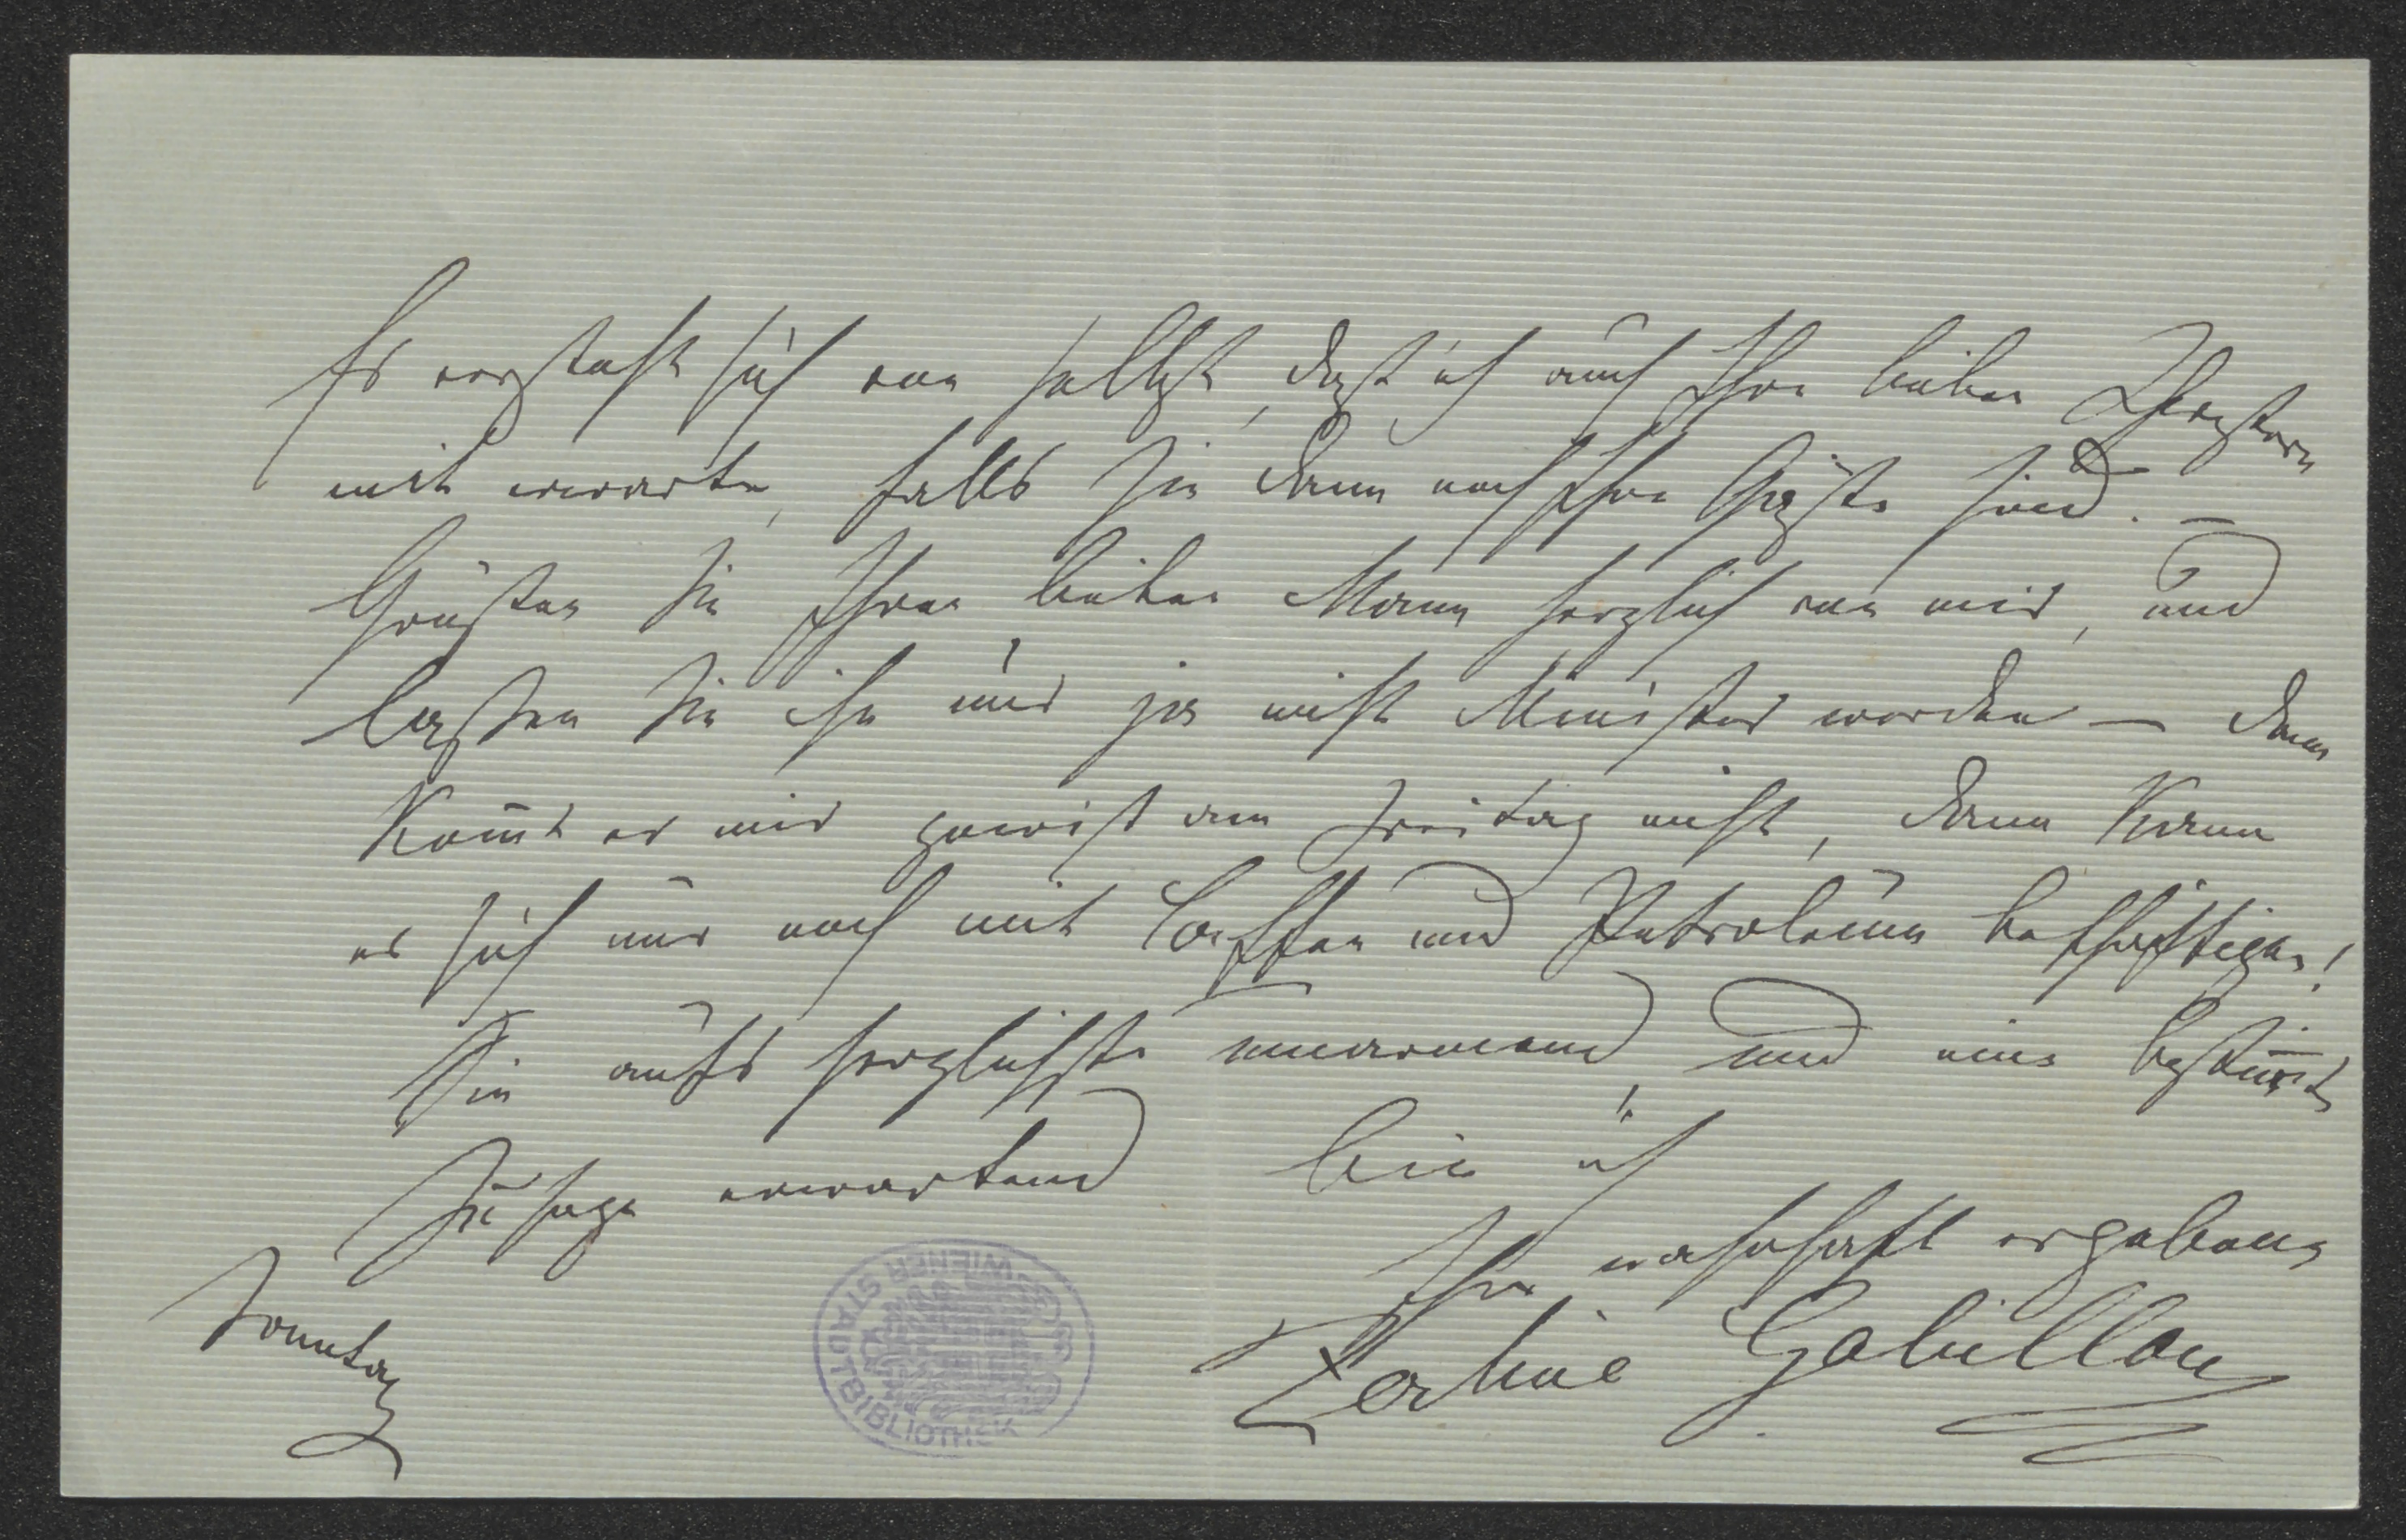 Es versteht sich von selbst, daß ich auch Ihre lieben Schwestern
mit erwarte, falls sie dann noch Ihre Gäste sind. —
Grüßen Sie Ihren lieben Mann herzlich von mir, und
laßen Sie ihn nur ja nicht Minister werden — denn
kom̅t er mir gewiß am Freitag nicht, dann kann
er sich nur noch mit Caffee und Petroleum beschäftigen!
Sie aufs herzlichste umarmend, und eine bestim̅te
Zusage erwartend bin ich
Ihre wahrhaft ergebene
Zerline Gabillon
Sonntag
WIENER STADTBIBLIOTHEK